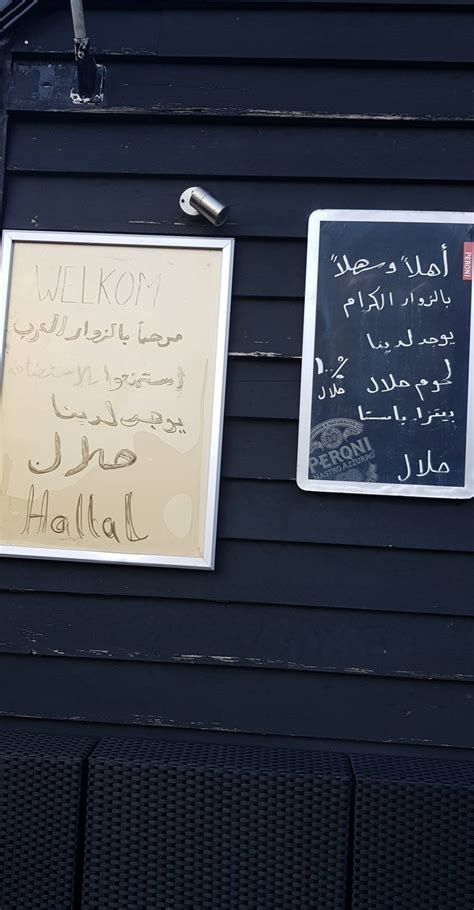 WELKOM
مرحباً بالزوار العرب
إستمتعوا بالاستضافة
يوجد لدينا
حلال
Hallal
PERONI
أهلاً وسهلاً
بالزوار الكرام
يوجد لدينا
لحوم حلال ١٠٠% حلال
بيتزا، باستا
حلال
PERONI
NASTRO AZZURRO